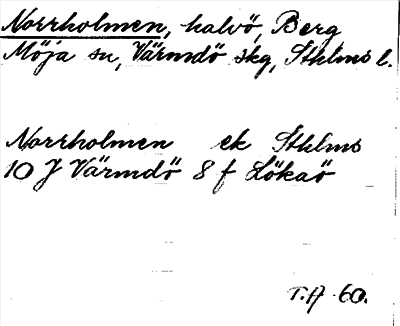 Norrholmen, halvö, Berg
Möja sn, Värmdö skg, Sthlms l.
Norrholmen ek Sthlms
10 J Värmdö 8 f Lökaö
T.A 60.